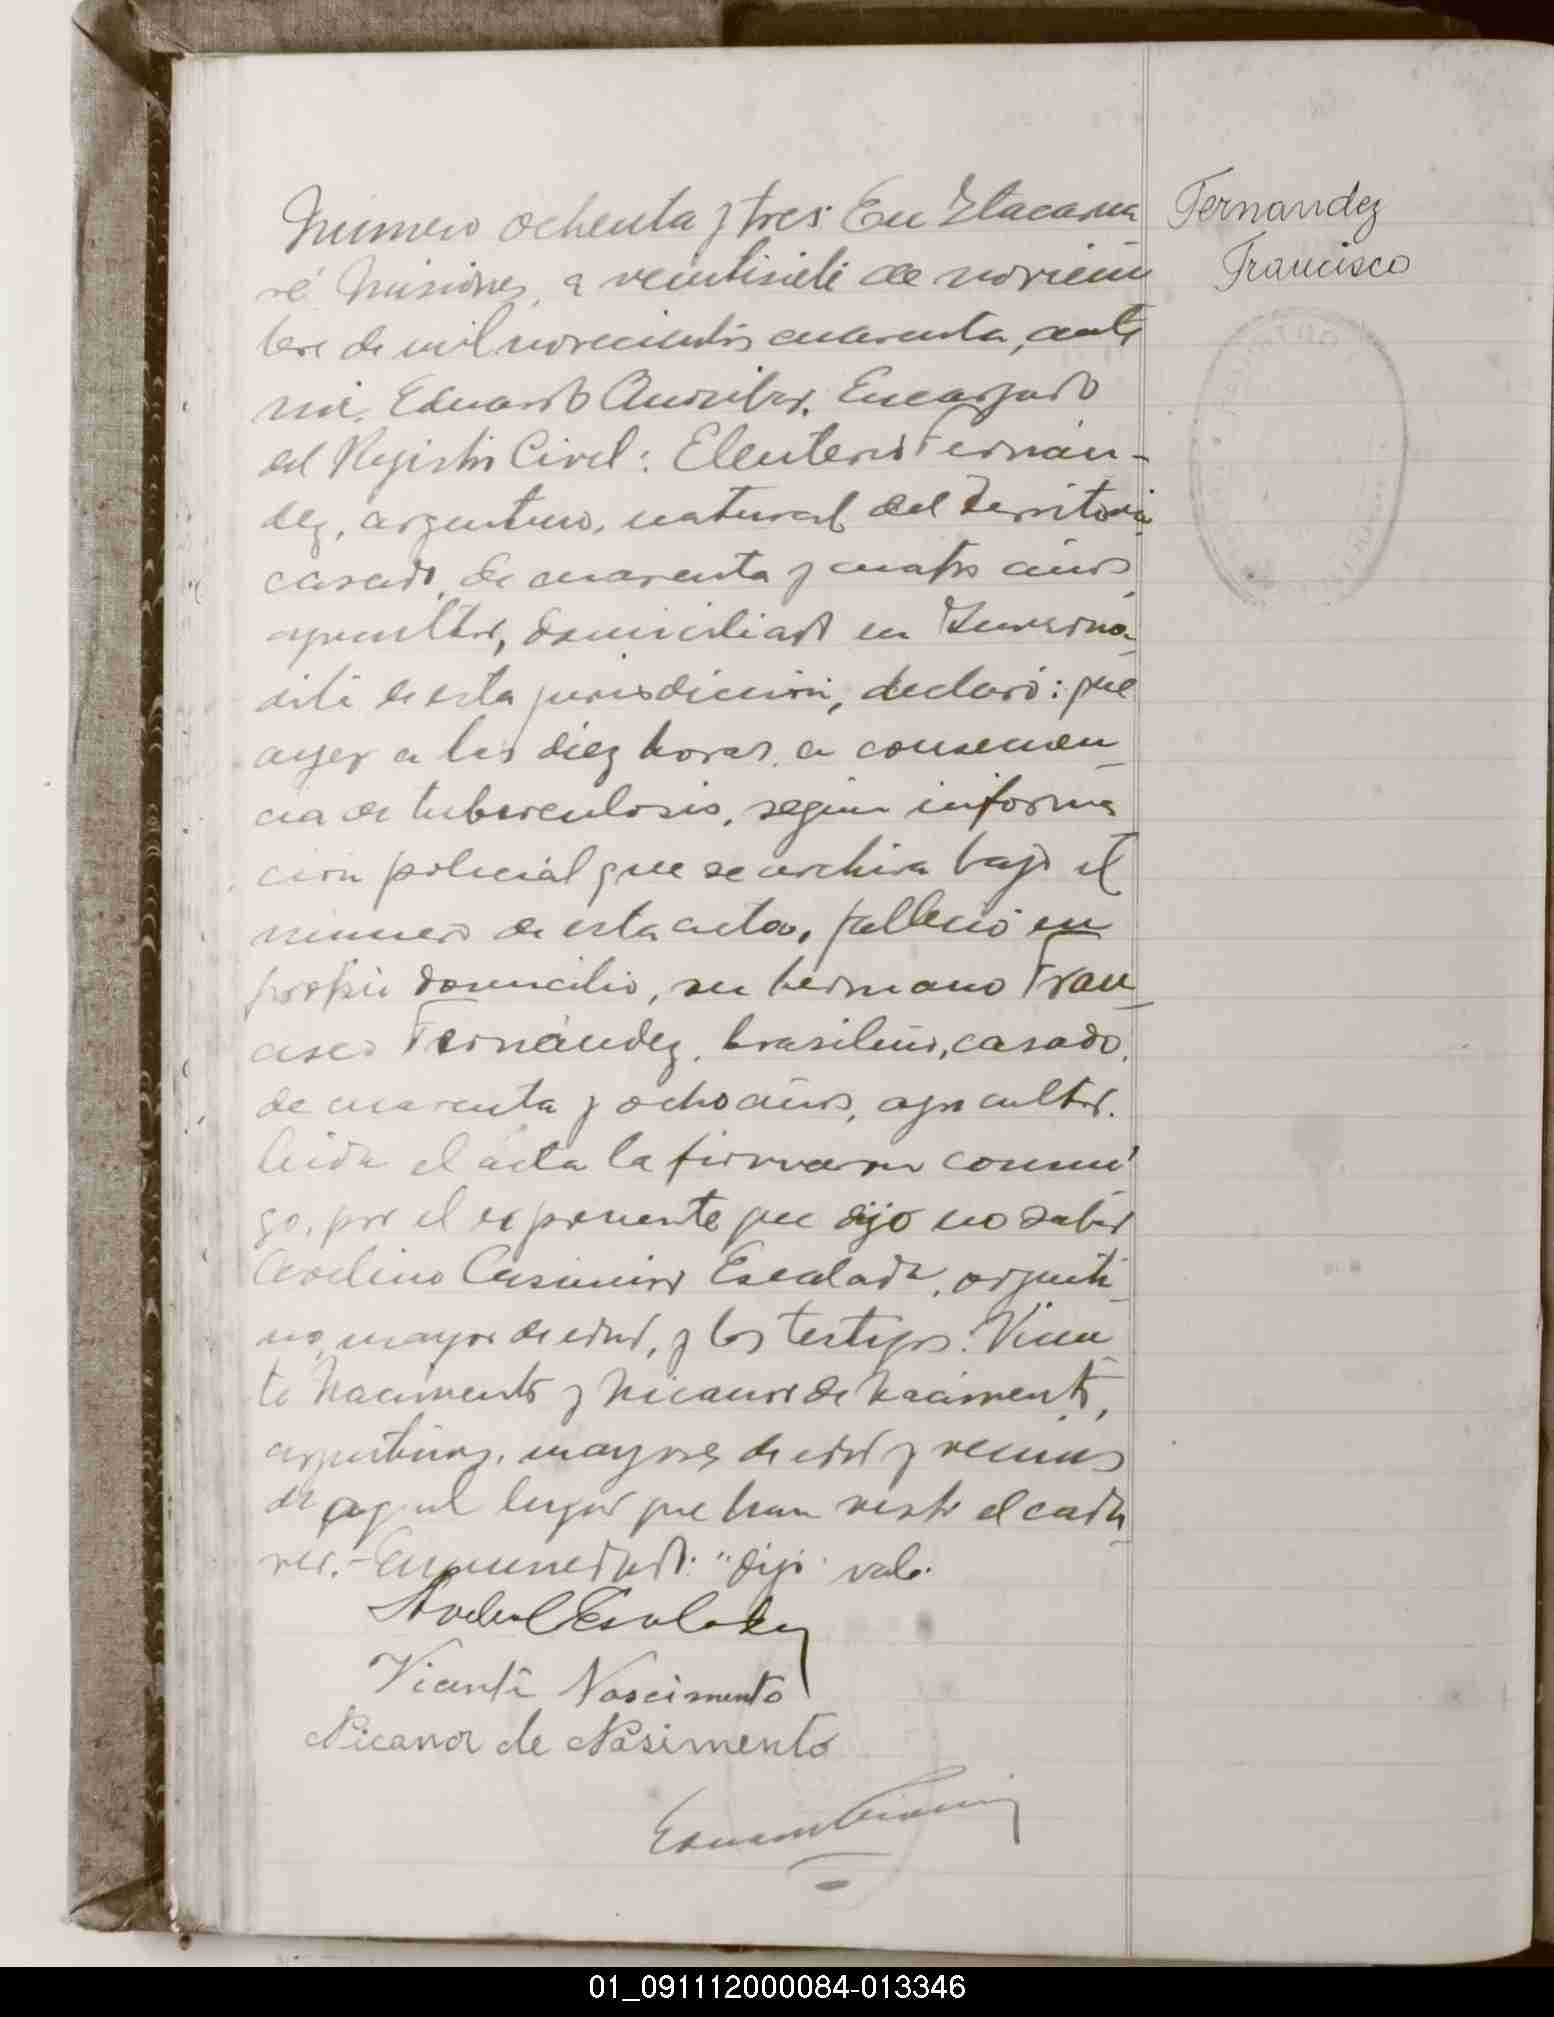 Número ochenta y tres. En Itacarua
ré Misiones, a veintisiete de noviem
bre de mil novecientos cuarenta, ante
mi, Eduardo Encargado
del Registro Civil: Eleuterio Fernán-
dez, argentino, natural del Territorio
casado, de cuarenta y cuatro años
agricultor, domiciliado en
de esta jurisdicción, declaró: que
ayer a las diez horas, a consecuen
cia de tuberculosis, según informa
ción policial que se archiva bajo el
número de esta acta, falleció en
propio domicilio, su hermano Fran
cisco Fernández, brasileño, casado,
de cuarenta y ocho años, agricultor.
Leida el acta la firmaron conmi
go, por el exponente que dijo no saber
Avelino Casimiro Escalada, argenti
no, mayor de edad, y los testigos: Vicen
te Nacimento y Nicanor de Nacimento,
argentinos, mayores de edad y vecinos
de aquel lugar que han visto el cadá
ver.- Enmendado: "dijo" vale.
Vicente Nascimento
Nicanor de Nasimento
Fernandez
Francisco
01_091112000084-013346